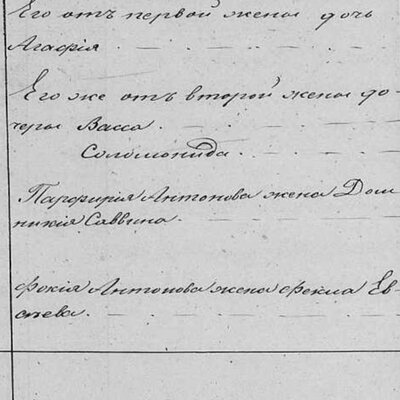 Его отъ первой жены дочь
Агафія.
Его же отъ второй жены до-
черы Васса.
Соломонида.
Парфирія Антонова жена Дом
никія Саввина
Фокія Антонова жена Фекла Ев-
сѣева.